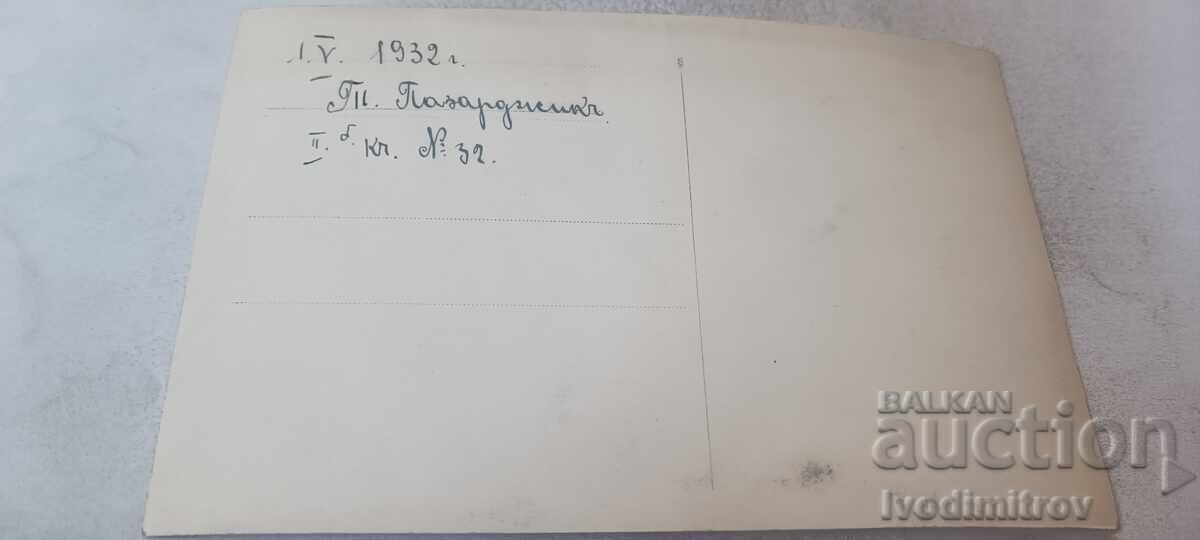 1.V. 1932 г.
Т. Пазарджикъ.
II. б. кл. № 32.
BALKAN
auction
Ivodimitrov